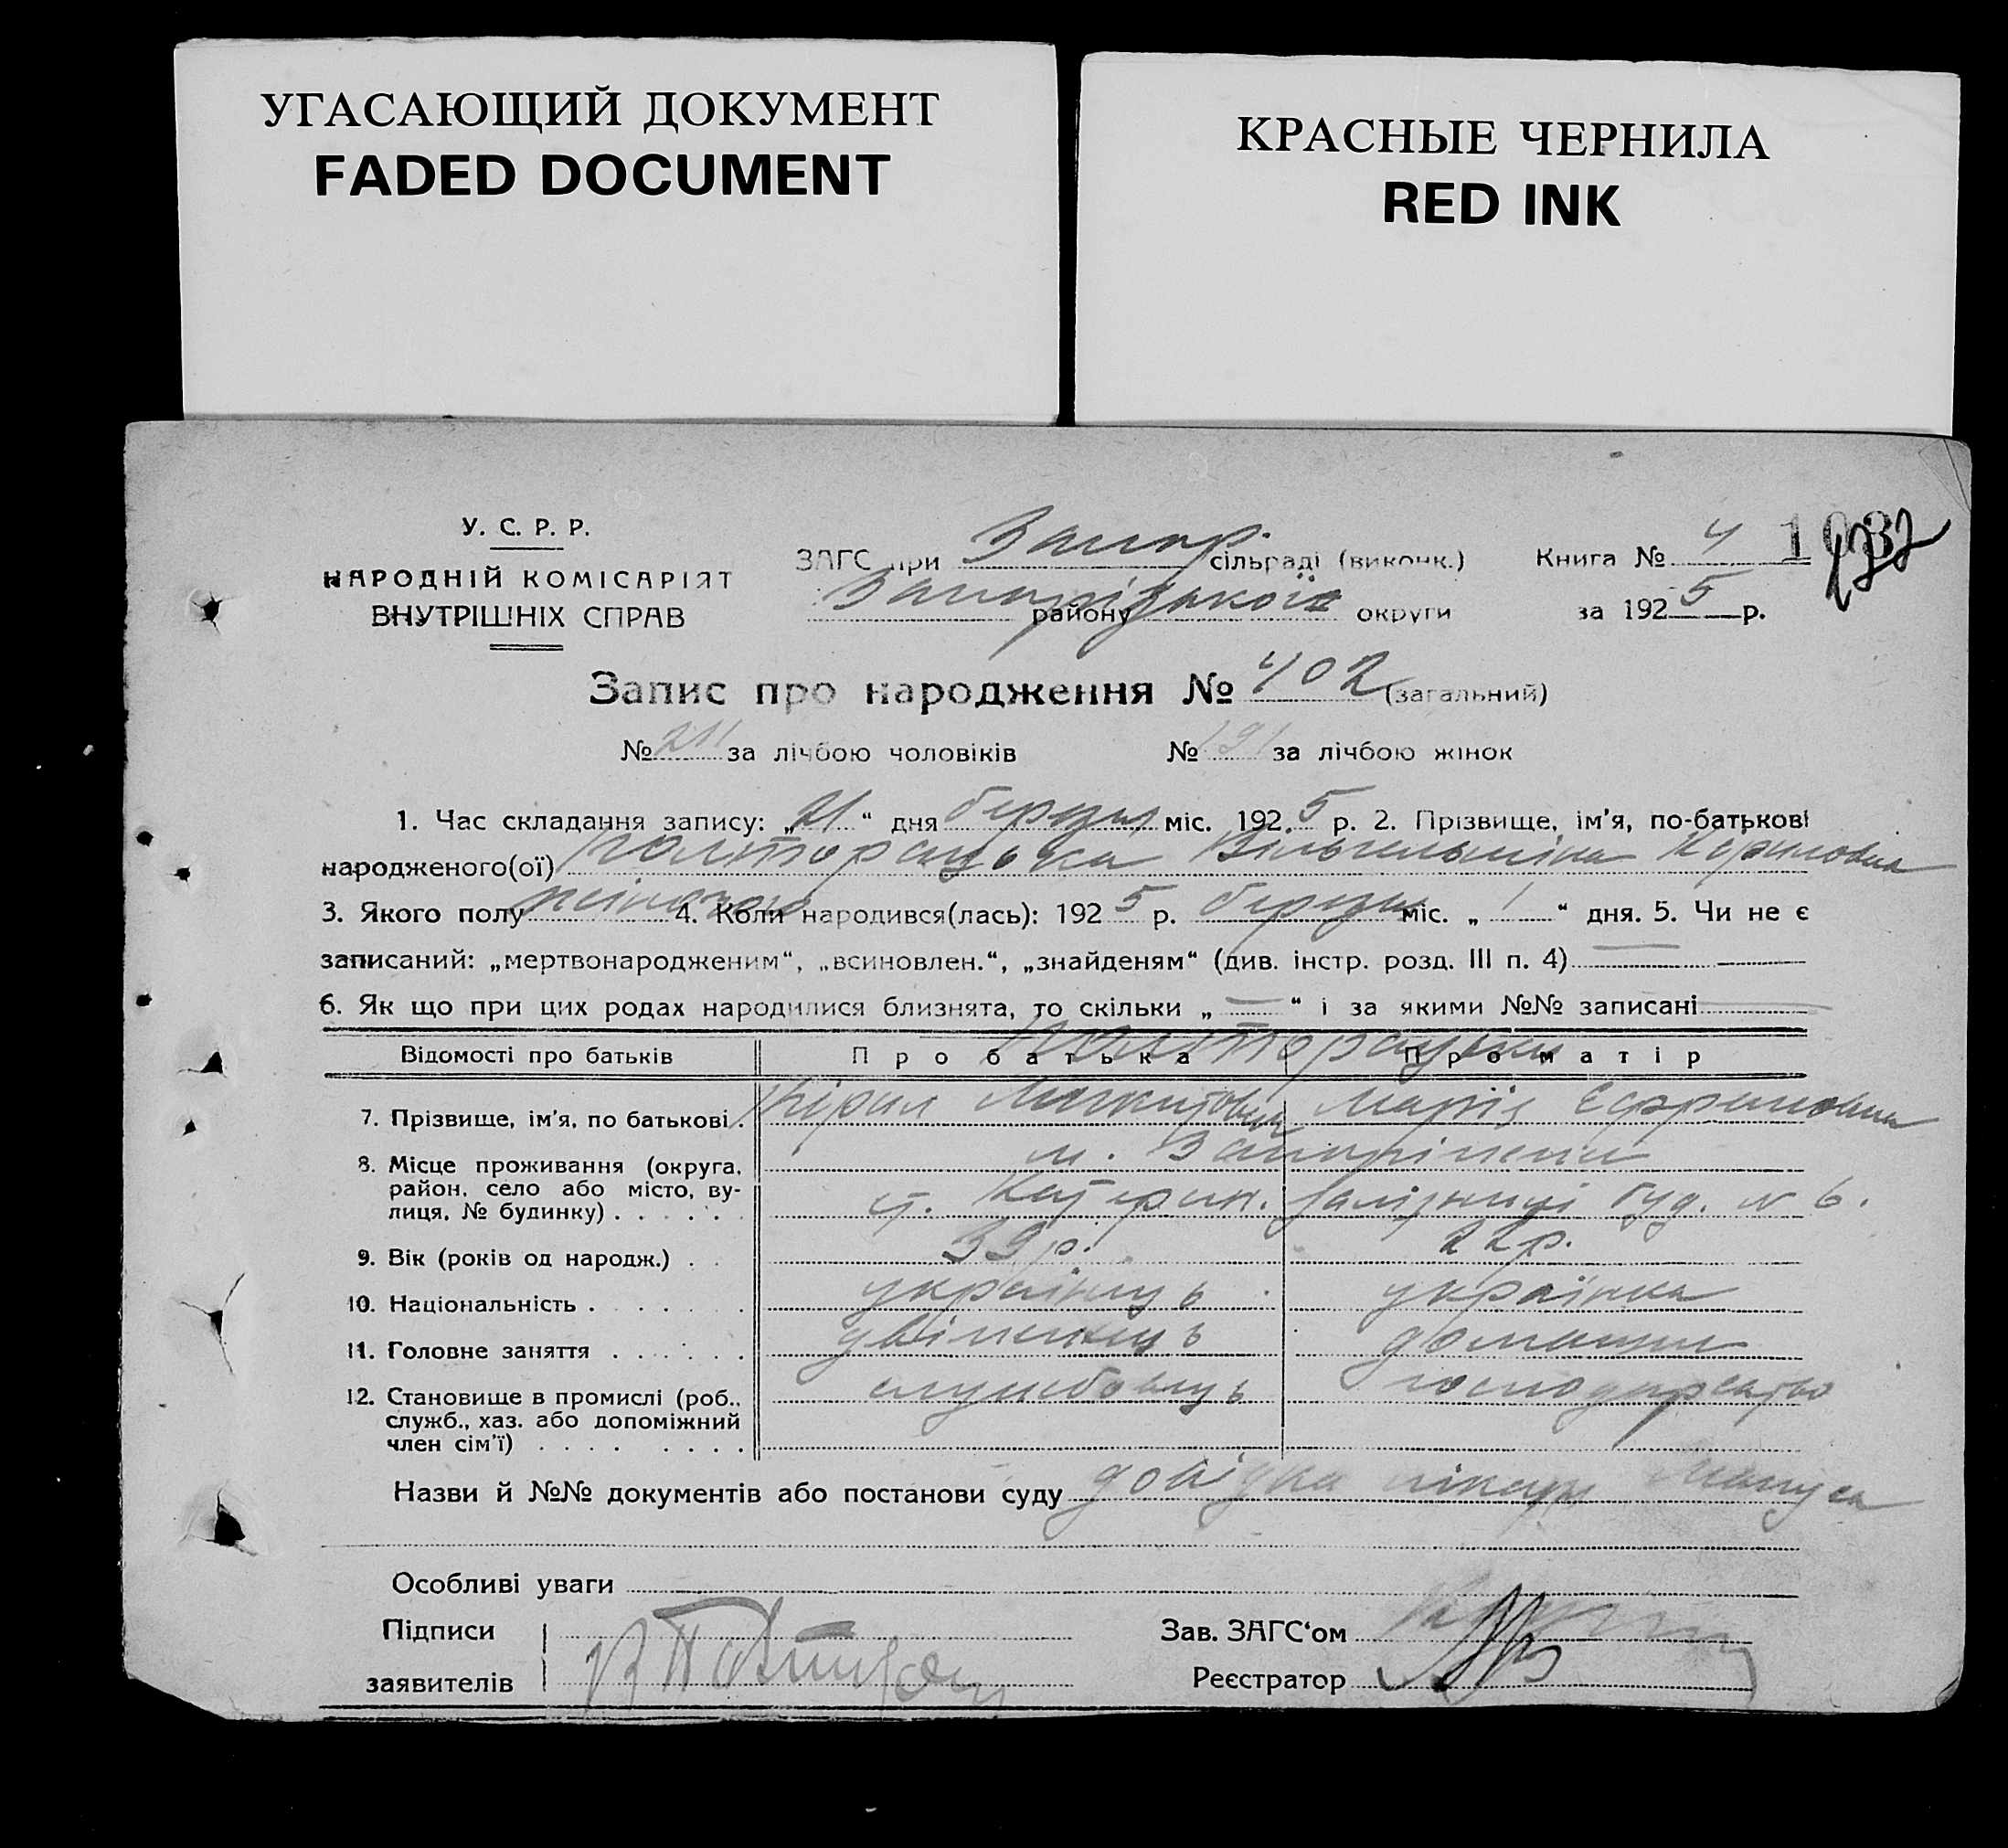 УГАСАЮЩИЙ ДОКУМЕНТ
FADED DOCUMENT
КРАСНЫЕ ЧЕРНИЛА
RED INK
У. С. Р. Р.
НАРОДНІЙ КОМІСАРІЯТ
ВНУТРІШНІХ СПРАВ
ЗАГС при Запор. сільраді (виконк.)
Запорізького району округи
Книга № 4
за 1925 р.
Запис про народження № 402 (загальний)
№ 211 за лічбою чоловіків № 191 за лічбою жінок
1. Час складання запису: „21“ дня березня міс. 1925 р. 2. Прізвище, ім’я, по-батькові
народженого(ої) Полторацька Вільгельміна Кириловна
3. Якого полу жіночого 4. Коли народився(лась): 1925 р. березня міс. „1“ дня. 5. Чи не є
записаний: „мертвонародженим“, „всиновлен.“, „знайденям“ (див. інстр. розд. III п. 4) —
6. Як що при цих родах народилися близнята, то скільки „—“ і за якими №№ записані
Полторацьки
Відомості про батьків Про батька Про матір
7. Прізвище, ім’я, по батькові . Кірил Марія
8. Місце проживання (округа, м. Запоріжжя
район, село або місто, ву- ст. Катерин. Залізниці буд. № 6.
лиця, № будинку) . . . . . .
9. Вік (років од народж.) . . 39 р. 22 р.
10. Національність . . . . . . українець українка
11. Головне заняття . . . . . . домашнє
12. Становище в промислі (роб., службовець господарство
служб., хаз. або допоміжний
член сім’ї) . . . . . . . .
Назви й №№ документів або постанови суду довідка лікаря
Особливі уваги
Підписи Зав. ЗАГС‘ом
заявителів Реєстратор